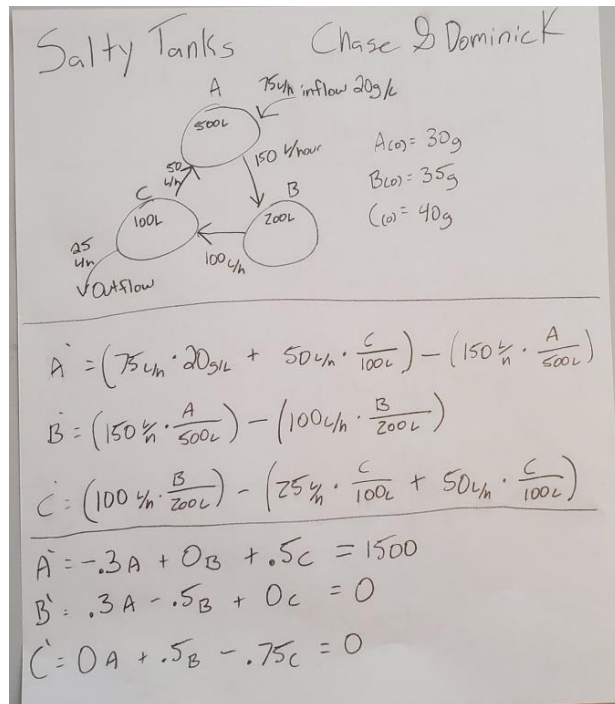 Salty Tanks Chase & Dominick
A
75L/h inflow 20g/L
500L
150 L/hour
A(0) = 30g
50 L/h
B
B(0) = 35g
C
100L
200L
C(0) = 40g
25 L/h
100 L/h
Outflow
A' = (75 L/h · 20g/L + 50 L/h · C/100L) - (150 L/h · A/500L)
B' = (150 L/h · A/500L) - (100 L/h · B/200L)
C' = (100 L/h · B/200L) - (25 L/h · C/100L + 50 L/h · C/100L)
A' = -.3A + 0B + .5C = 1500
B' = .3A - .5B + 0C = 0
C' = 0A + .5B - .75C = 0